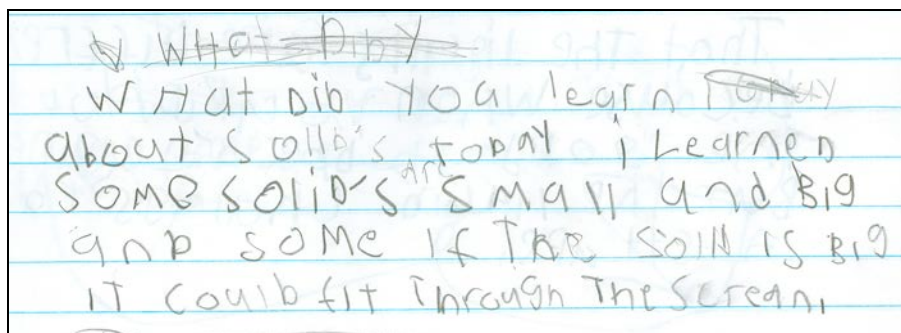 What Did Y
What Did You learn Today
about sollb's today i Learned
are
Some solid's small and Big
and some if The solid is Big
it Could fit Through The Screan,